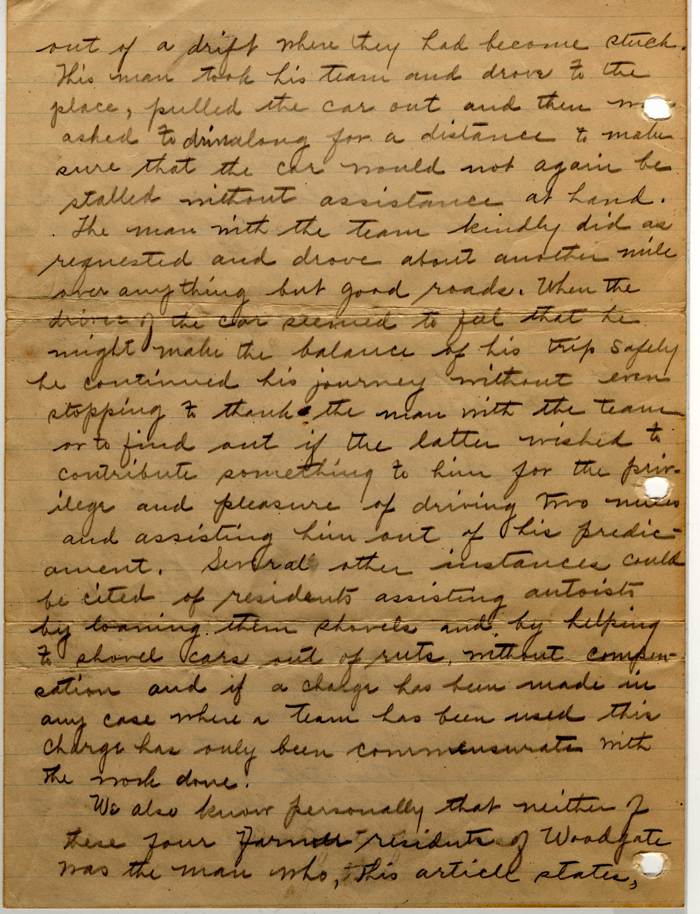 out of a drift where they had become stuck.
This man took his team and drove to the
place, pulled the car out and then was
asked to drive along for a distance to make
sure that the car would not again be
stalled without assistance at hand.
The man with the team kindly did as
requested and drove about another mile
over anything but good roads. When the
driver of the car seemed to feel that he
might make the balance of his trip safely
he continued his journey without even
stopping to thank the man with the team
or to find out if the latter wished to
contribute something to him for the priv-
ilege and pleasure of driving two miles
and assisting him out of his predic-
ament. Several other instances could
be cited of residents assisting autoists
by loaning them shovels and by helping
to shovel cars out of ruts, without compen-
sation and if a charge has been made in
any case where a team has been used this
charge has only been commensurate with
the work done.
We also know personally that neither of
these four Farmer residents of Woodgate
was the man who, this article states,